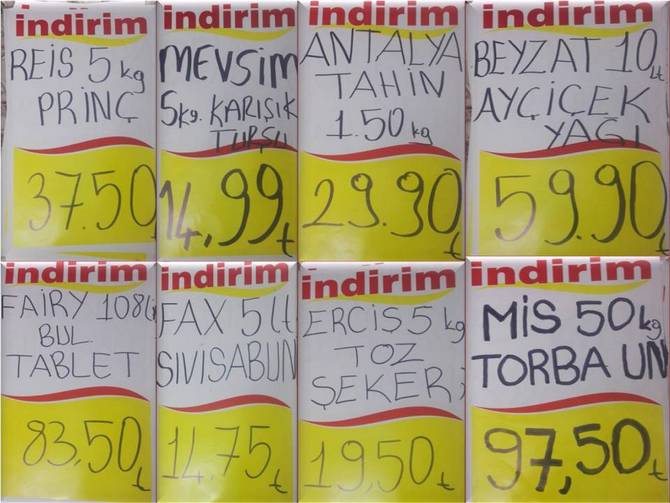 indirim
REİS 5 kg
PRİNÇ
37.50
indirim
MEVSİM
5kg. KARIŞIK
TURŞU
14,99 t
indirim
ANTALYA
TAHİN
1.50 kg
29.90 t
indirim
BEYZAT 10 Lt
AYÇİÇEK
YAĞI
59.90 t
indirim
FAİRY 108Lİ
BUL
TABLET
83,50 t
indirim
FAX 5 lt
SIVISABUN
14,75 t
indirim
ERCİŞ 5 kg
TOZ
ŞEKER
19,50 t
indirim
MİS 50kg
TORBA UN
97,50 t